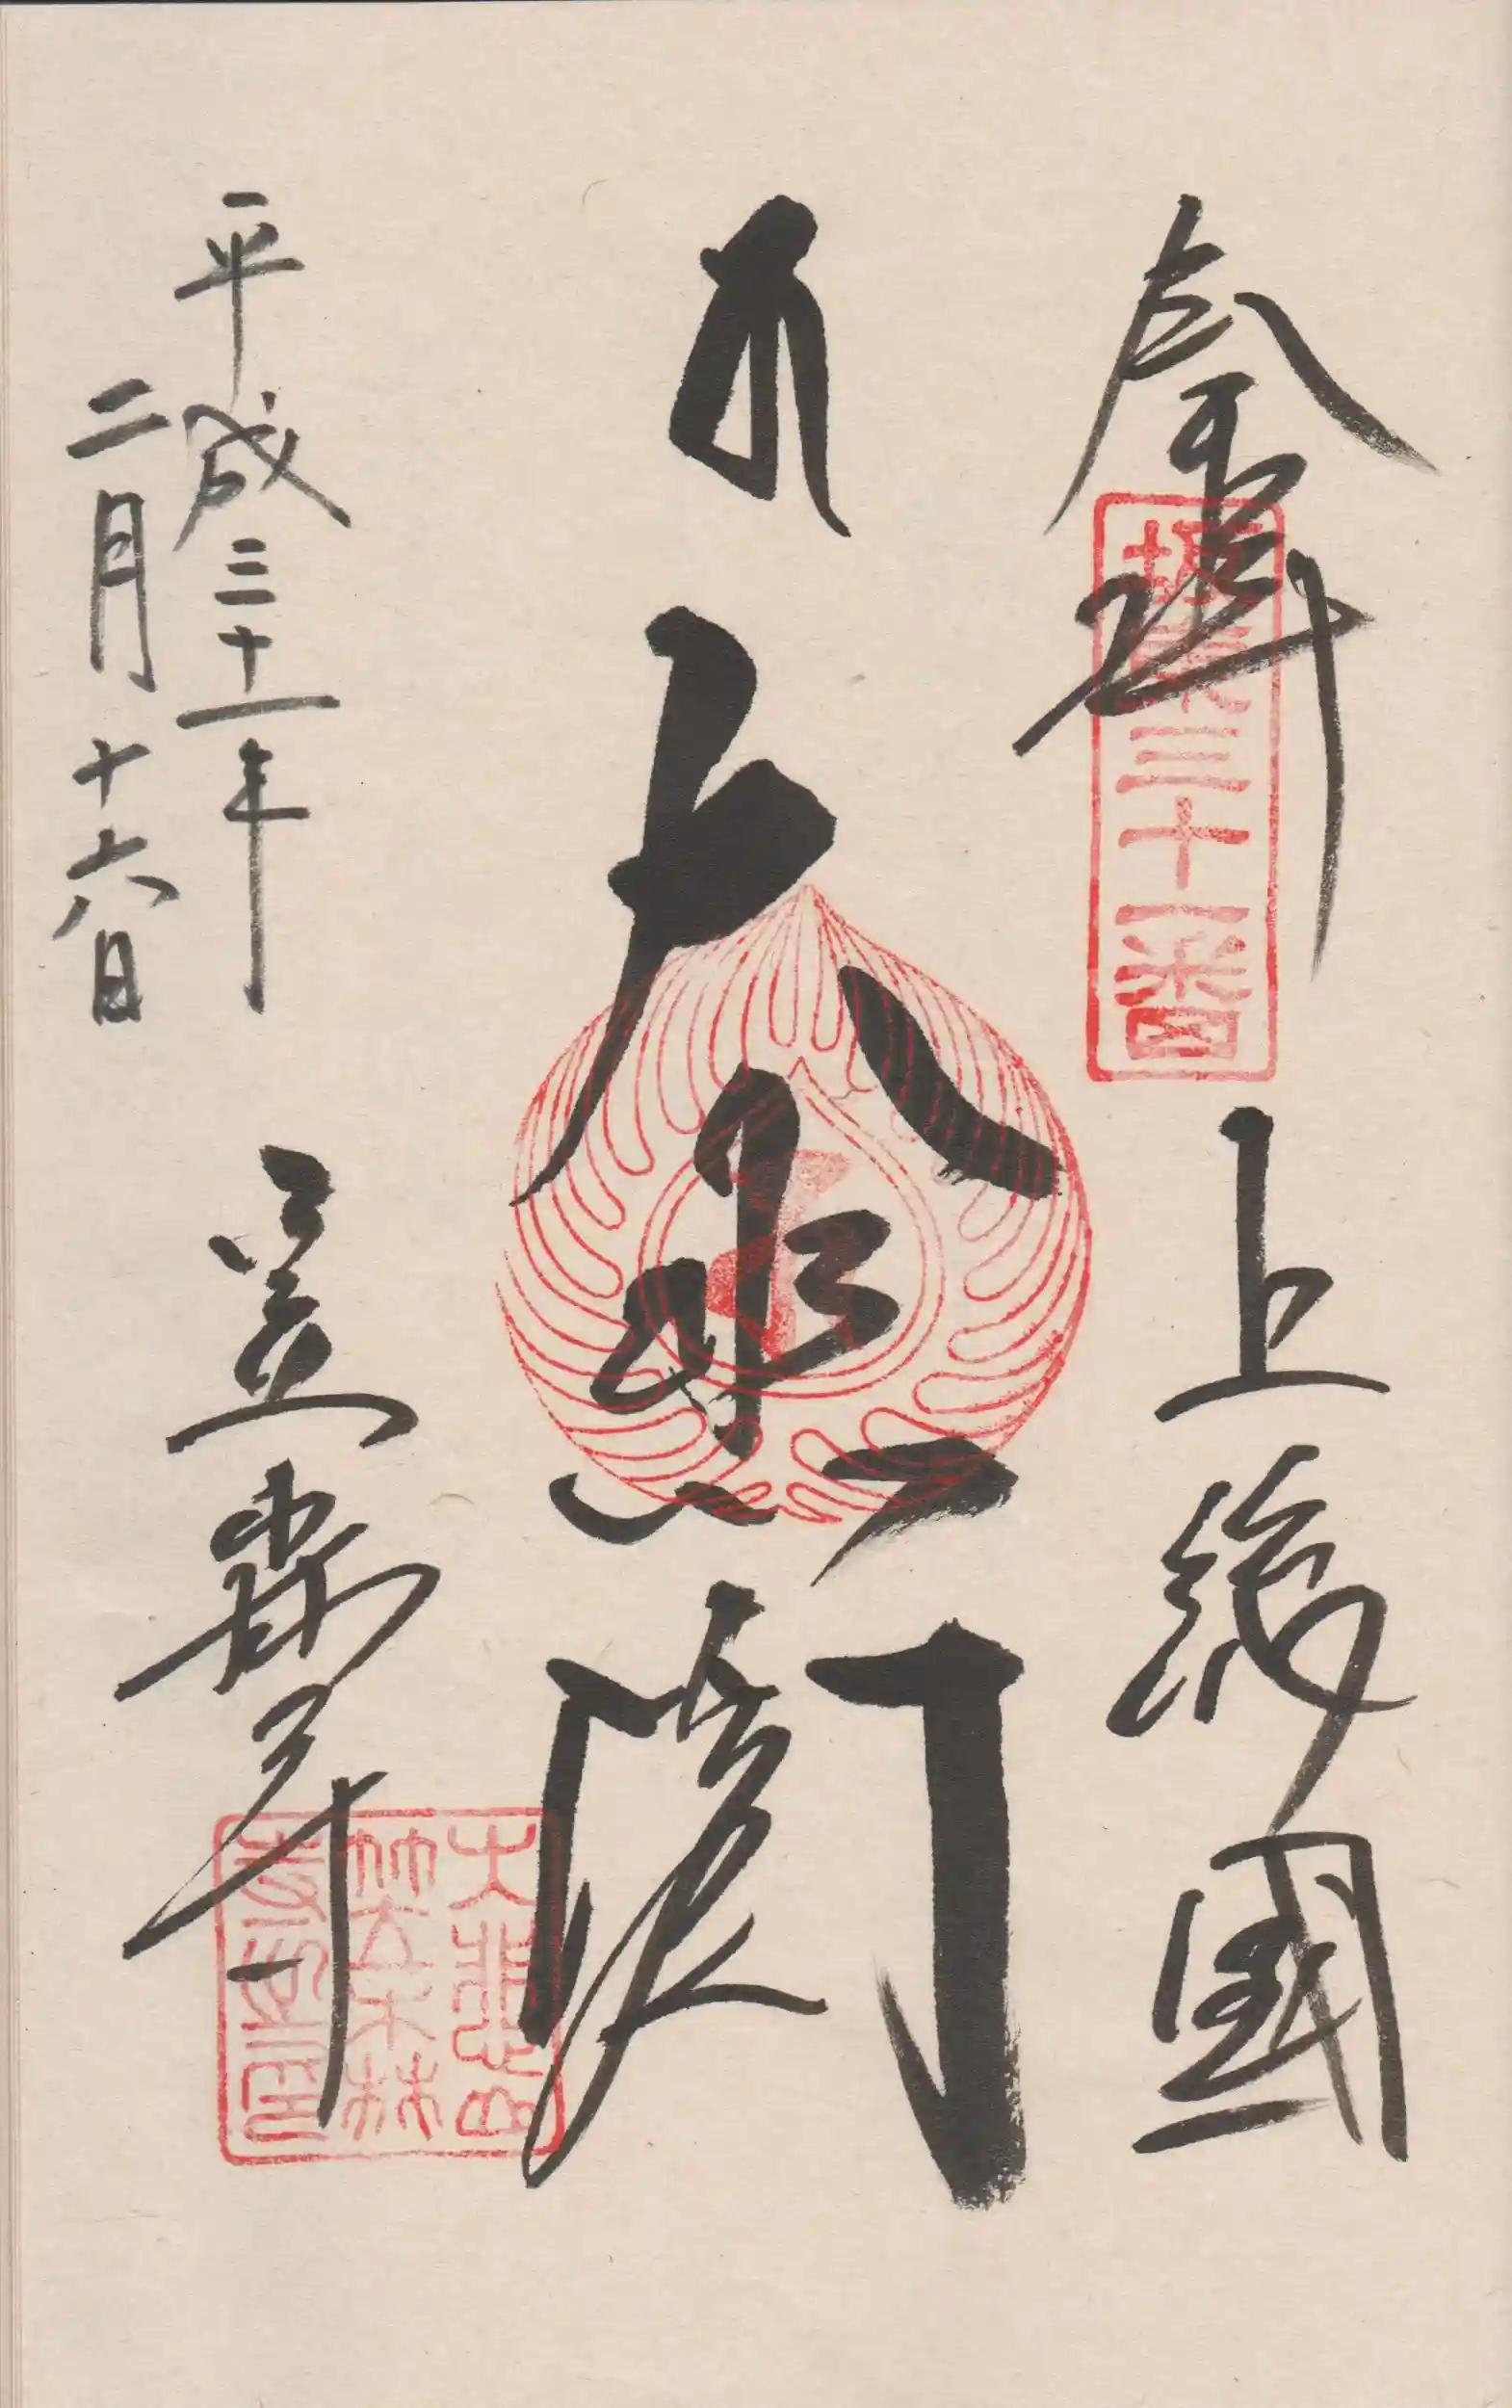 奉拝 上総國
坂東三十一番
大悲閣
平成三十一年
二月十六日
笠森寺
大悲山
笠森
寺印